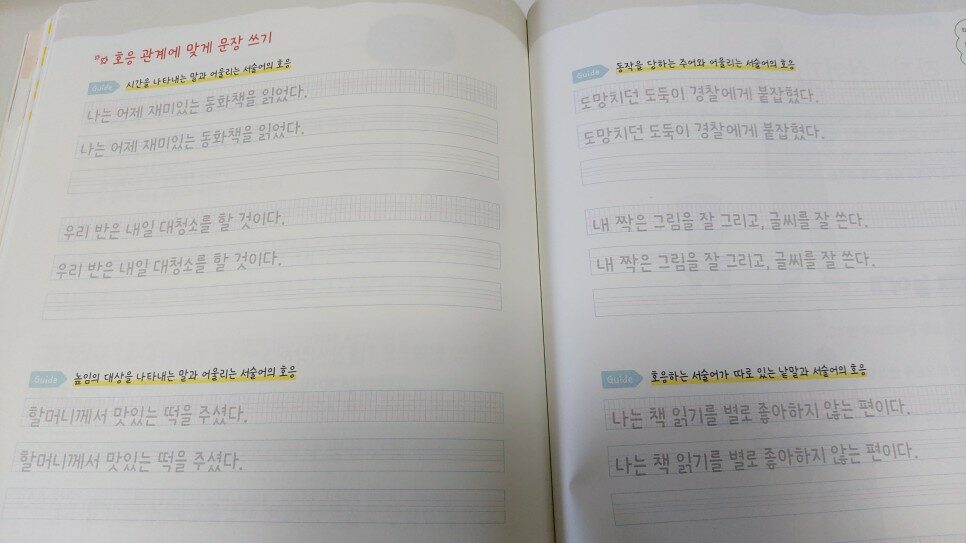 호응 관계에 맞게 문장 쓰기
Guide 시간을 나타내는 말과 어울리는 서술어의 호응
나는 어제 재미있는 동화책을 읽었다.
나는 어제 재미있는 동화책을 읽었다.
우리 반은 내일 대청소를 할 것이다.
우리 반은 내일 대청소를 할 것이다.
Guide 높임의 대상을 나타내는 말과 어울리는 서술어의 호응
할머니께서 맛있는 떡을 주셨다.
할머니께서 맛있는 떡을 주셨다.
Guide 동작을 당하는 주어와 어울리는 서술어의 호응
도망치던 도둑이 경찰에게 붙잡혔다.
도망치던 도둑이 경찰에게 붙잡혔다.
내 짝은 그림을 잘 그리고, 글씨를 잘 쓴다.
내 짝은 그림을 잘 그리고, 글씨를 잘 쓴다.
Guide 호응하는 서술어가 따로 있는 낱말과 서술어의 호응
나는 책 읽기를 별로 좋아하지 않는 편이다.
나는 책 읽기를 별로 좋아하지 않는 편이다.